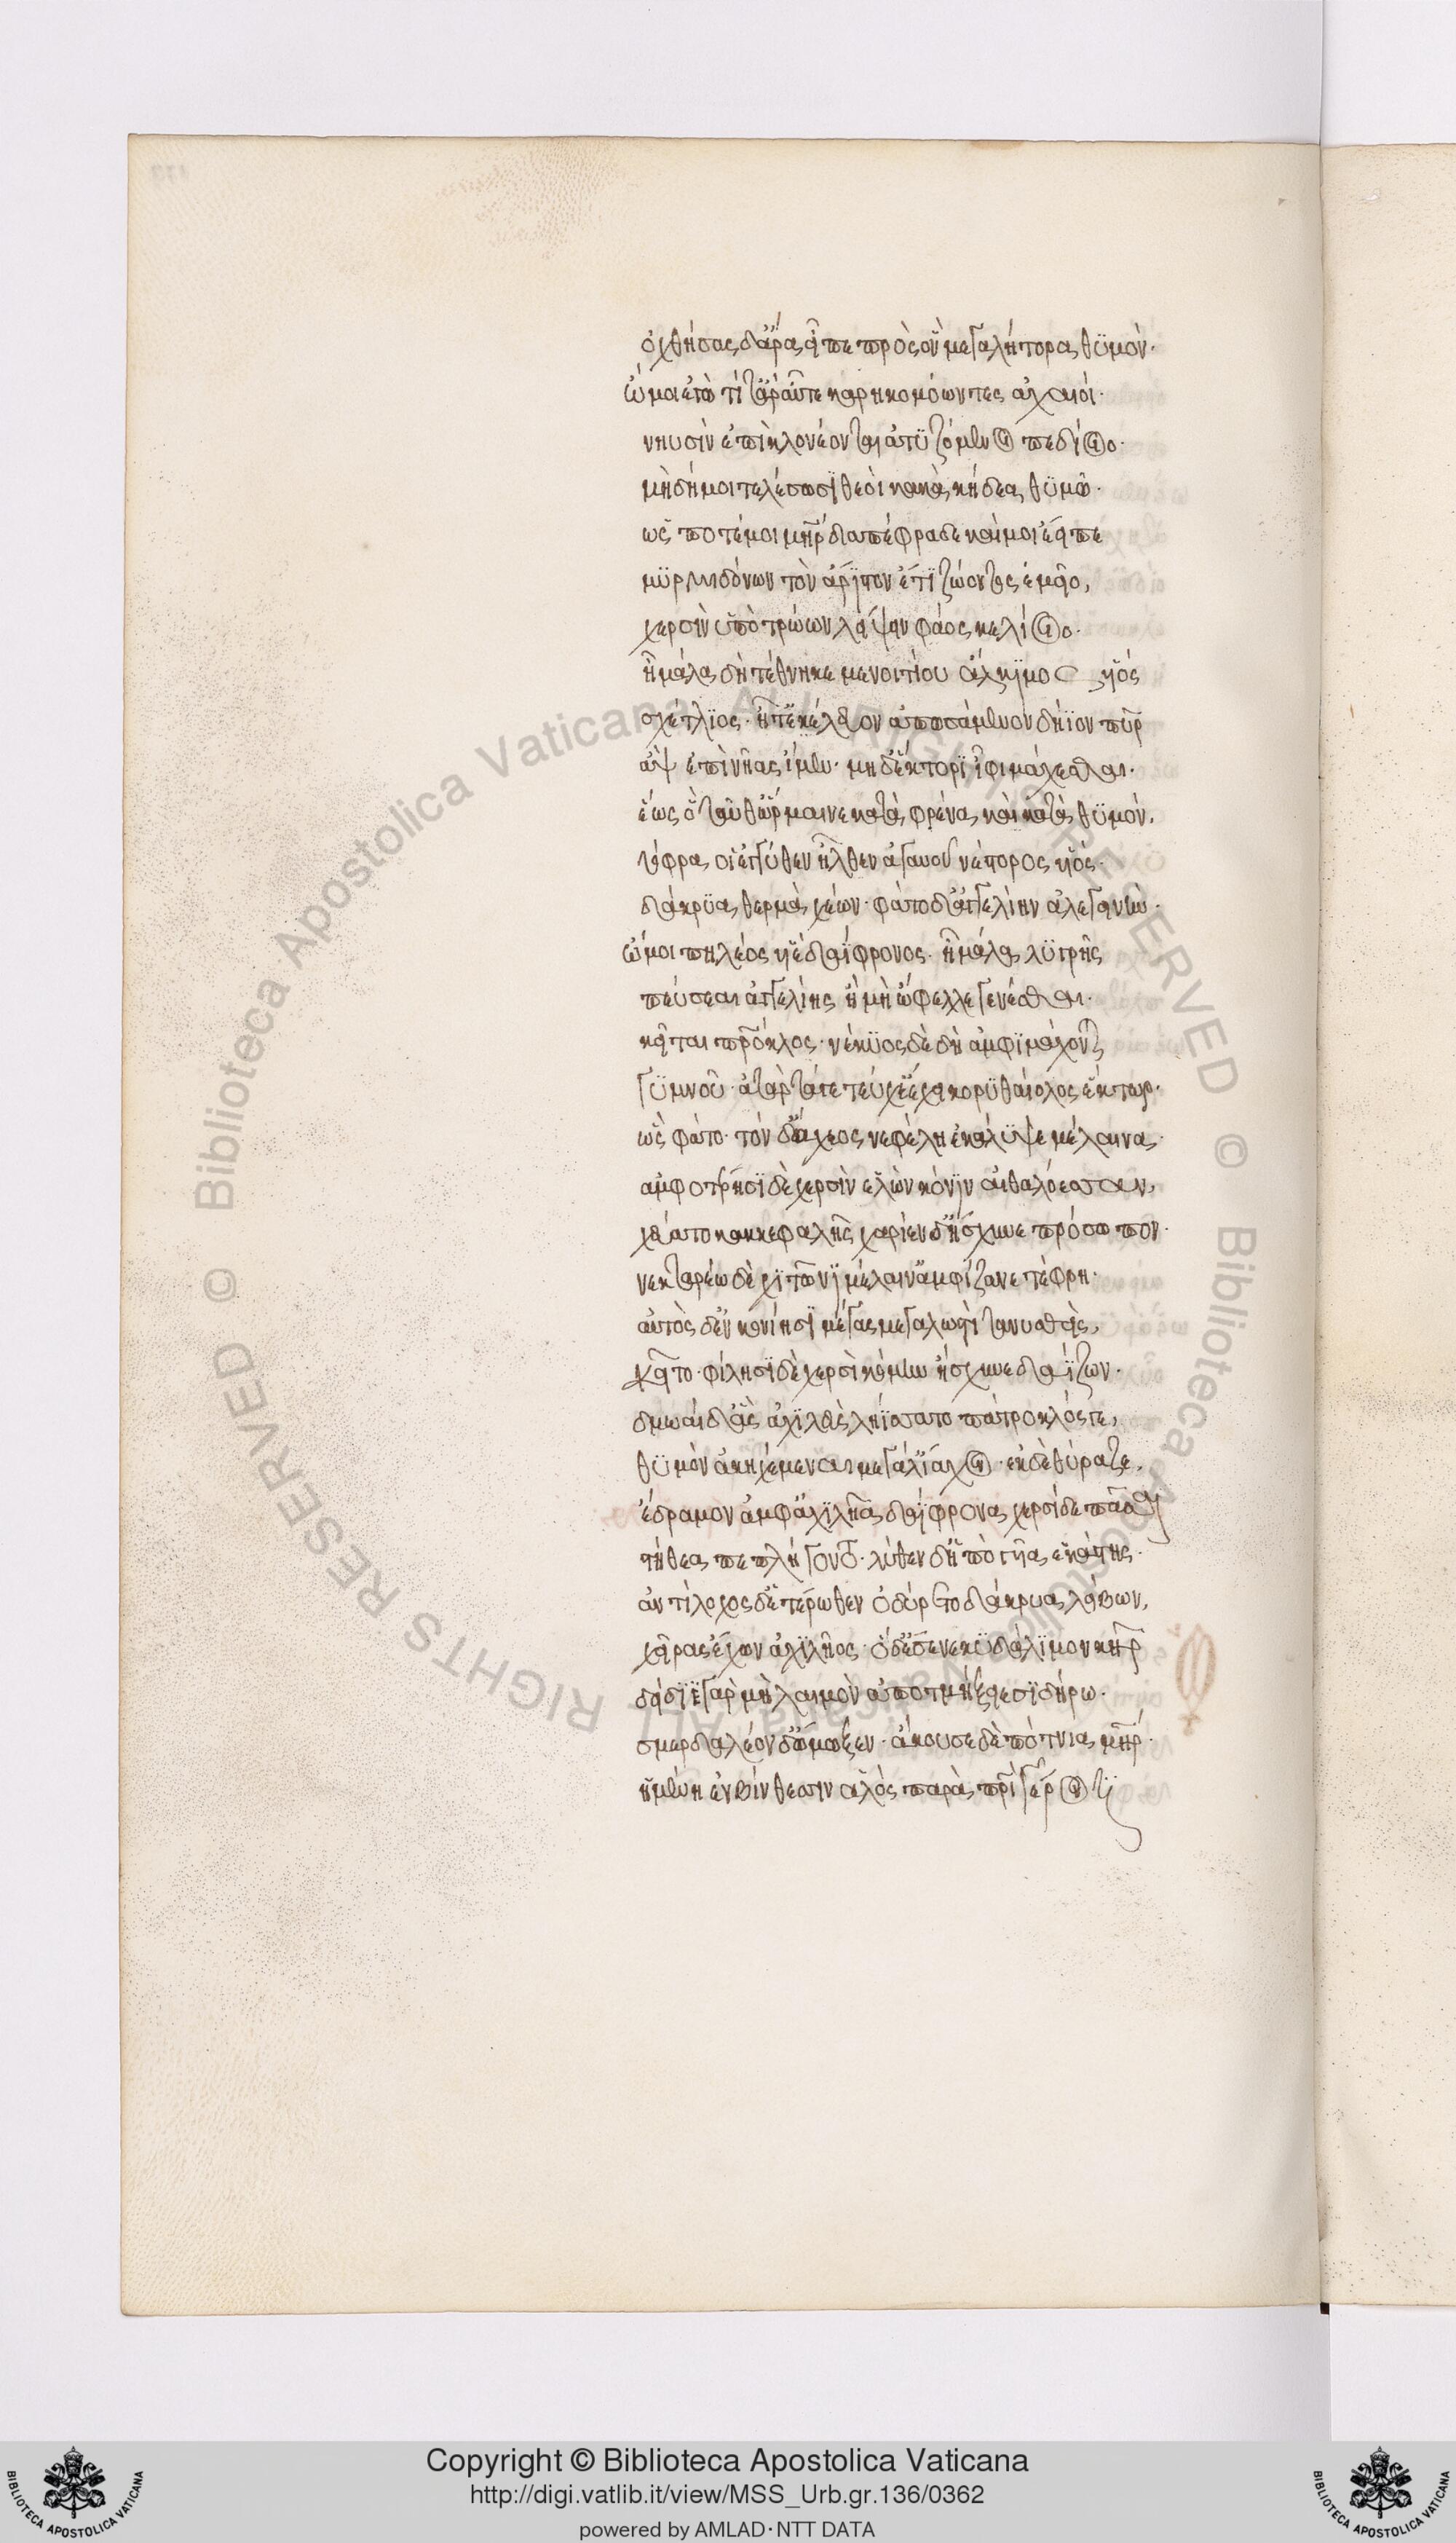 ὀχθήσας δ' ἄρα εἶπε πρὸς ὃν μεγαλήτορα θϋμόν·
ὤ μοι ἐγὼ τί τ' ἄρ' αὖτε καρηκομόωντες ἀχαιοί·
νηυσὶν ἔπι κλονέονται ἀτϋζόμενοι πεδίοιο·
μὴ δή μοι τελέσωσϊ θεοὶ κακὰ κήδεα θϋμῶ·
ὥς ποτέ μοι μηρ διαπέφραδε καί μοι ἔειπε
μϋρμιδόνων τὸν ἄρϊστον ἔτϊ ζώοντος ἐμεῖο,
χερσὶν ὕπο τρώων λείψειν φάος ηελίοιο·
ἦ μάλα δὴ τέθνηκε μενοιτίου ἄλκϊμος ϋἱός
σχέτλϊος· ἦ τ' ἐκέλευον ἀπωσάμενον δήϊον πῦρ
ἂψ ἐπὶ νῆας ἴμεν· μὴ δ' ἕκτορϊ ἶφι μάχεσθαι·
ἕως ὃ ταῦθ' ὥρμαινε κατὰ φρένα καὶ κατὰ θϋμόν,
τόφρα οἱ ἐγγύθεν ἦλθεν ἀγαυοῦ νέστορος ϋἱός·
δάκρϋα θερμὰ χέων· φάτο δ' ἀγγελίην ἀλεγεινήν·
ὤ μοι πηλέος ϋἱὲ δαΐφρονος· ἦ μάλα λϋγρῆς
πεύσεαι ἀγγελίης ἣ μὴ ὤφελλε γενέσθαι·
κεῖται πάτροκλος· νέκϋος δὲ δὴ ἀμφϊμάχονται
γϋμνοῦ· ἀτὰρ τά γε τεύχε' ἔχει κορϋθαίολος ἕκτωρ·
ὣς φάτο· τὸν δ' ἄχεος νεφέλη ἐκάλϋψε μέλαινα·
ἀμφοτέρησϊ δὲ χερσὶν ἑλὼν κόνϊν αἰθαλόεσσαν,
χεύατο κακκεφαλῆς χαρίεν δ' ἤσχυνε πρόσωπον·
νεκταρέω δὲ χϊτῶνϊ μέλαιν' ἀμφίζανε τέφρη·
αὐτὸς δ' ἐν κονίησϊ μέγας μεγαλωστὶ τανυσθείς,
κεῖτο· φίλησϊ δὲ χερσὶ κόμην ἤσχυνε δαΐζων·
δμωαὶ δ' ἃς ἀχϊλεὺς ληΐσσατο πάτροκλός τε,
θϋμὸν ἀκηχέμεναι μεγάλ' ἴαχον· ἐκ δὲ θύραζε,
ἔδραμον ἀμφ' ἀχϊλῆα δαΐφρονα χερσὶ δὲ πᾶσαι
στήθεα πεπλήγοντο· λύθεν δ' ὑπὸ γυῖα ἑκάστης·
ἀντίλοχος δ' ἑτέρωθεν ὀδύρετο δάκρυα λείβων,
χεῖρας ἔχων ἀχϊλῆος· ὁ δ' ἔστενε κϋδάλϊμον κῆρ
δείδϊε γὰρ μὴ λαιμὸν ἀποτμήξειε σϊδήρω·
σμερδαλέον δ' ὤμωξεν· ἄκουσε δὲ πότνια μηρ·
ἡμένη ἐν βένθεσσιν ἁλὸς παρὰ πρὶ γέροντϊ
Copyright © Biblioteca Apostolica Vaticana
http://digi.vatlib.it/view/MSS_Urb.gr.136/0362
powered by AMLAD·NTT DATA